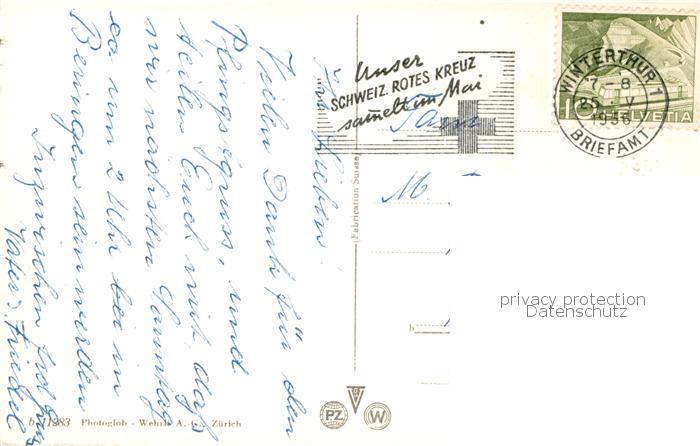 Ihr Lieben!
Vielen Dank für den
Pfingstgruss, und
teile Euch mit, daß
wir nächsten Samstag
ca um 2 Uhr bei in
Beringen sein werden
Inzwischen frdl.
Vater u. Friedel
Unser
SCHWEIZ. ROTES KREUZ
sammelt im Mai
WINTERTHUR 1
25. V.
1956
BRIEFAMT
10 HELVETIA
Fam
M.
(Fabrication Suisse)
privacy protection
Datenschutz
b
b 11283 Photoglob - Wehrli A.-G., Zürich
PZ
W